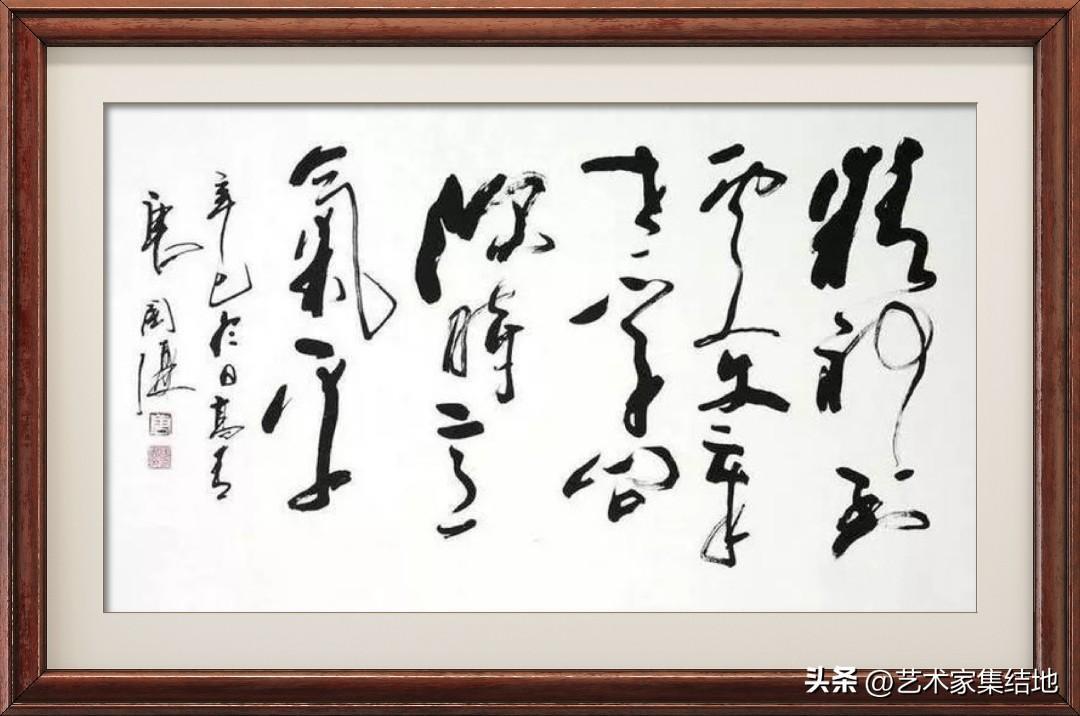 精神到
處文章
老學問
深時意
氣平
辛巳
頭条 @艺术家集结地